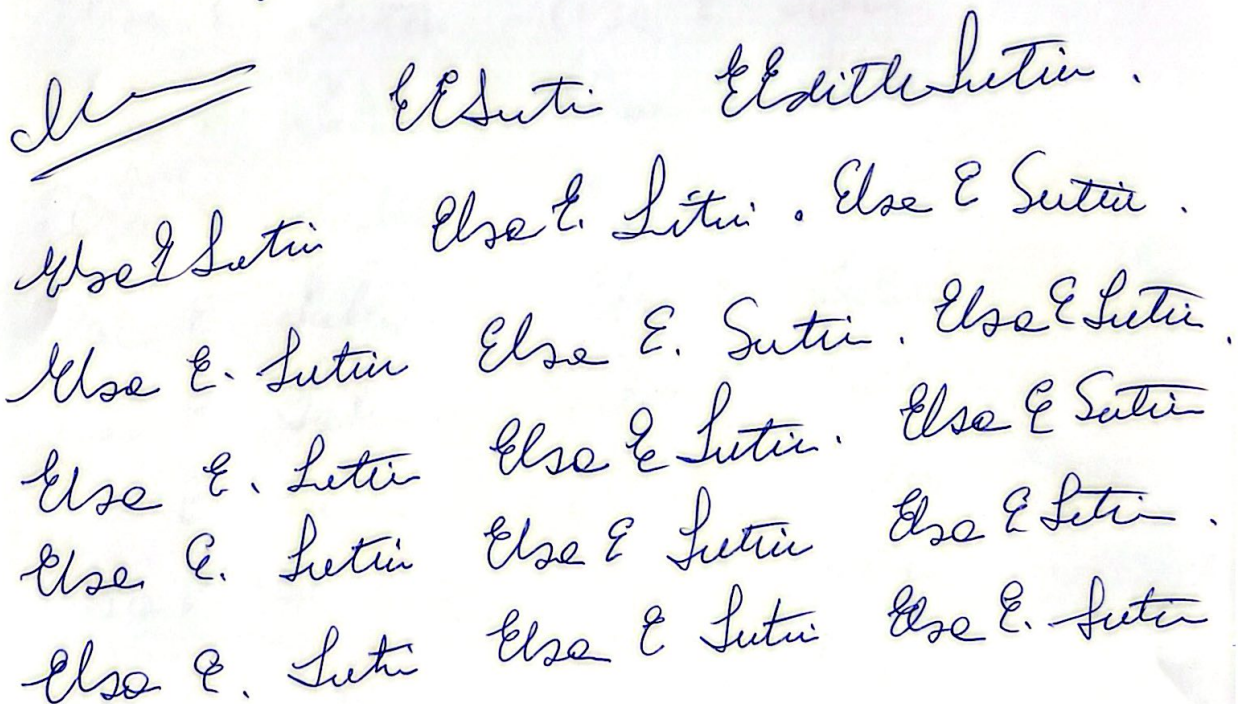 EESutin EEdith Sutin.
Elsa E Sutin Elsa E. Sutin. Elsa E Sutin.
Elsa E. Sutin Elsa E. Sutin. Elsa E Sutin.
Elsa E. Sutin Elsa E Sutin. Elsa E Sutin
Elsa E. Sutin Elsa E Sutin Elsa E Sutin.
Elsa E. Sutin Elsa E Sutin Elsa E. Sutin